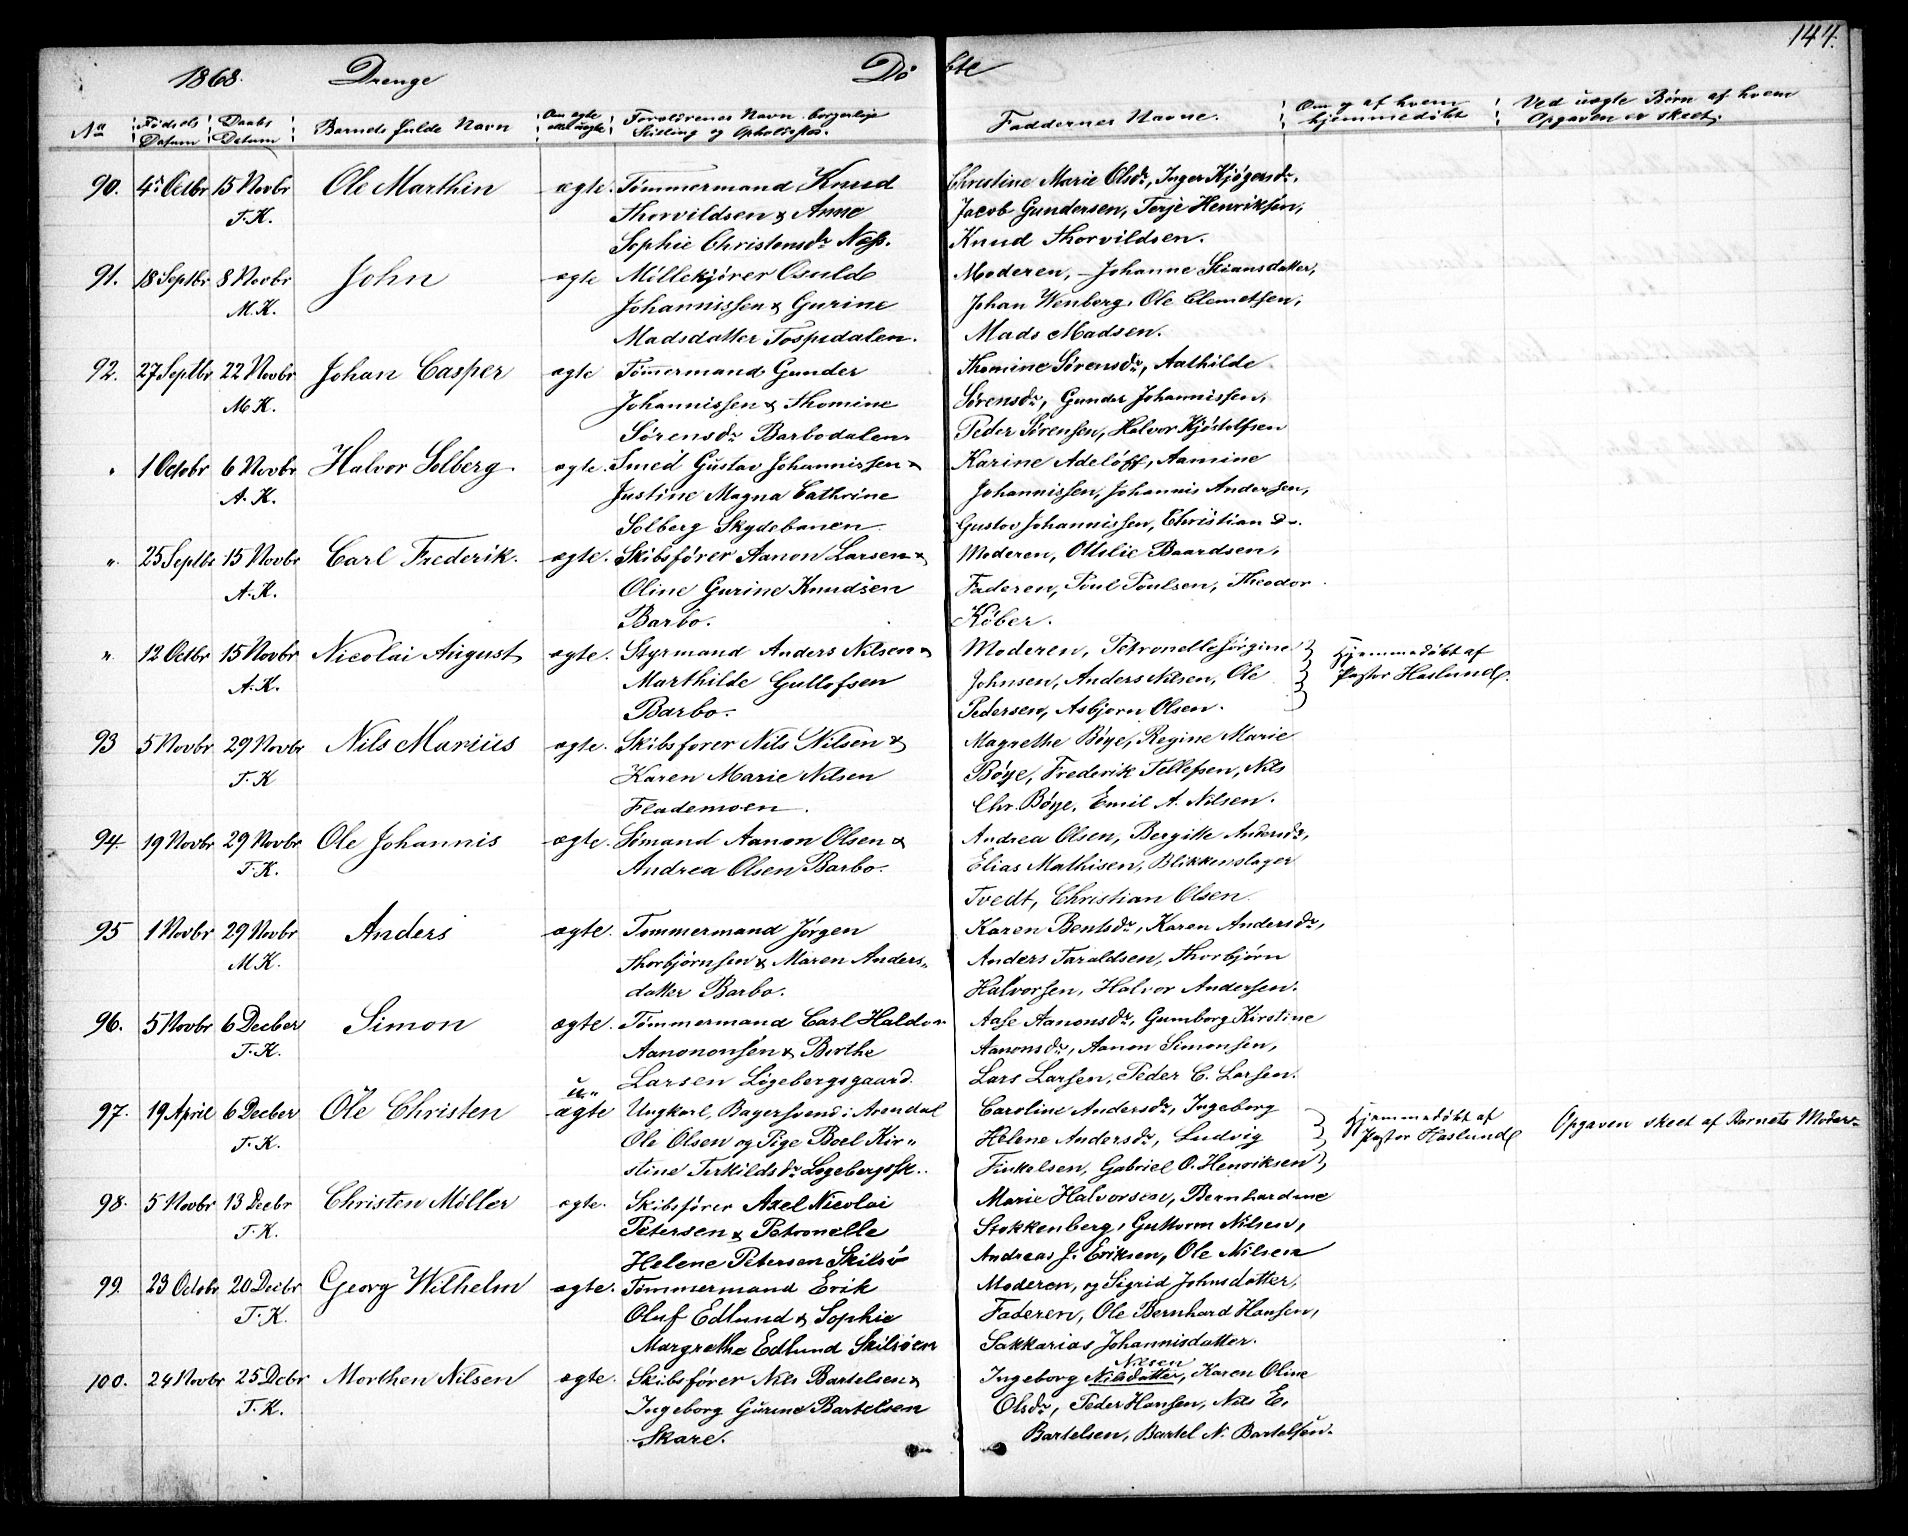 144.
1868. Drenge Døbte
No Fødsels Datum Daabs Datum Barnets fulde Navn Om ægte eller uægte Forældrenes Navn borgerlige Stilling og Opholdssted. Faddernes Navne. Om og af hvem hjemmedøbt Ved uægte Børn af hvem Opgaven er skeet.
90. 4de Octbr 15 Novbr Ole Marthin ægte. Tømmermand Knud Christine Marie Olsdr, Inger Kjøgersdr,
T.K. Thorvildsen & Anne Jacob Gundersen, Terje Henriksen,
Sophie Christensdr Næss. Knud Thorvildsen.
91. 18 Septbr 8 Novbr John ægte Møllekjører Osuld Moderen, Johanne Stiansdatter,
M.K. Johannissen & Gurine Johan Wenberg, Ole Clemetsen,
Madsdatter Tospedalen. Mads Madsen.
92. 27 Septbr 22 Novbr Johan Casper ægte Tömmermand Gunder Thomine Sørensdr, Aathilde
M.K. Johannissen & Thomine Sørensdr, Gunder Johannissen,
Sørensdr Barbodalen. Peder Sørensen, Halvor Kjøstelsen
" 1 Octobr 6 Novbr Halvor Solberg ægte. Smed Gustav Johannissen & Karine Adeløff, Aamine
A.K. Justine Magna Cathrine Johannissen, Johannis Andersen,
Solberg Skydebanen. Gustav Johannissen, Christian do.
" 25 Septbr 15 Novbr Carl Frederik. ægte. Skibsfører Aanon Larsen & Moderen, Ottilie Baardsen,
A.K. Oline Gurine Knudsen Faderen, Poul Poulsen, Theodor
Barbo. Køber.
" 12 Octbr 15 Novbr Nicolai August ægte. Styrmand Anders Nilsen & Moderen, Petronelle Jørgine Hjemmedøbt af
A.K. Marthilde Gullofsen Johnsen, Anders Nilsen, Ole Pastor Haslund.
Barbo. Pedersen, Asbjørn Olsen.
93 5 Novbr 29 Novbr Nils Marius ægte. Skibsfører Nils Nilsen & Magrethe Bøye, Regine Marie
T.K Karen Marie Nilsen Bøye, Frederik Tellefsen, Nils
Flademoen. Chr. Bøye, Emil A. Nilsen.
94. 19 Novbr 29 Novbr Ole Johannis ægte. Sømand Aanon Olsen & Andrea Olsen, Bergitte Andersdr,
T.K. Andrea Olsen Barbo. Elias Mathisen, Blikkenslager
Tvedt, Christian Olsen.
95 1 Novbr 29 Novbr Anders ægte. Tømmermand Jørgen Karen Bentsdr, Karen Andersdr,
M.K. Thorbjørnsen & Maren Anders- Anders Taraldsen, Thorbjørn
datter Barbo. Halvorsen, Halvor Andersen.
96. 5 Novbr 6 Decber Simon ægte. Tømmermand Carl Haldor Aase Aanonsdr, Gumborg Kirstine
T.K. Aanononsen & Birthe Aanonsdr, Aanon Simonsen,
Larsen Løgebergsgaard. Lars Larsen, Peder C. Larsen.
97. 19 April 6 Decber Ole Christen u-ægte Ungkarl, Bagersvend i Arendal Caroline Andersdr, Ingeborg Hjemmedøbt af Opgaven skeet af Barnets Moder
T.K. Ole Olsen og Pige Boel Kir- Helene Andersdr, Ludvig Pastor Haslund
stine Terkildsdr Løgebergssk.. Finkelsen, Gabriel O. Henriksen,
98. 5 Novbr 13 Decbr Christen Møller ægte. Skibsfører Axel Nicolai Marie Halvorsen, Bernhardine
T.K. Petersen & Petronelle Stokkenberg, Guttorm Nilsen,
Helene Petersen Skilsø Andreas J. Eriksen, Ole Nilsen
99. 23 Octobr 20 Decbr Georg Wilhelm ægte. Tømmermand Erik Moderen, og Sigrid Johnsdatter,
T.K. Oluf Edlund & Sophie Faderen, Ole Bernhard Hansen,
Margrethe Edlund Skilsøen Sakkarias Johannisdatter.
100. 24 Novbr 25 Dcbr Morthen Nilsen ægte. Skibsfører Nils Bartelsen & Ingeborg Nilsdatter, Nilsen Karen Oline
T.K. Ingeborg Gurine Bartelsen Olsdr, Peder Hansen, Nils E.
Skare. Bartelsen, Bartel N. Bartelsen.